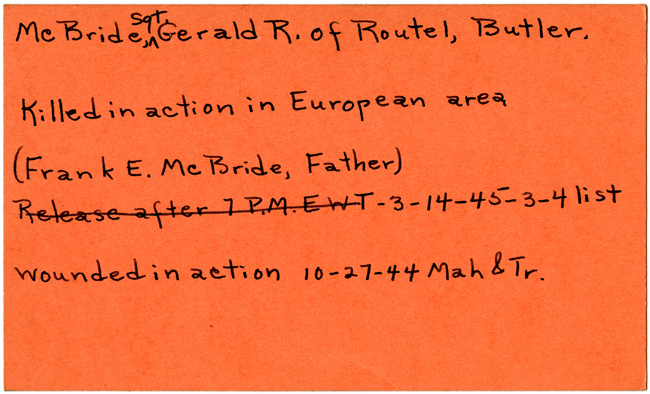 McBride, Sgt. Gerald R. of Route 1, Butler.
Killed in action in European area
(Frank E. McBride, Father)
Release after 7 P.M. EWT-3-14-45-3-4 list
wounded in action 10-27-44 Mah & Tr.